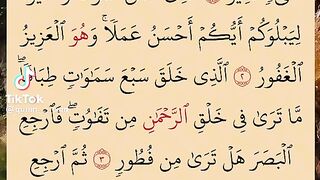 لِيَبْلُوَكُمْ أَيُّكُمْ أَحْسَنُ عَمَلًا ۚ وَهُوَ الْعَزِيزُ
الْغَفُورُ ٢ الَّذِي خَلَقَ سَبْعَ سَمَاوَاتٍ طِبَاقًا ۖ
TikTok
مَا تَرَىٰ فِي خَلْقِ الرَّحْمَٰنِ مِن تَفَاوُتٍ ۖ فَارْجِعِ
الْبَصَرَ هَلْ تَرَىٰ مِن فُطُورٍ ٣ ثُمَّ ارْجِعِ